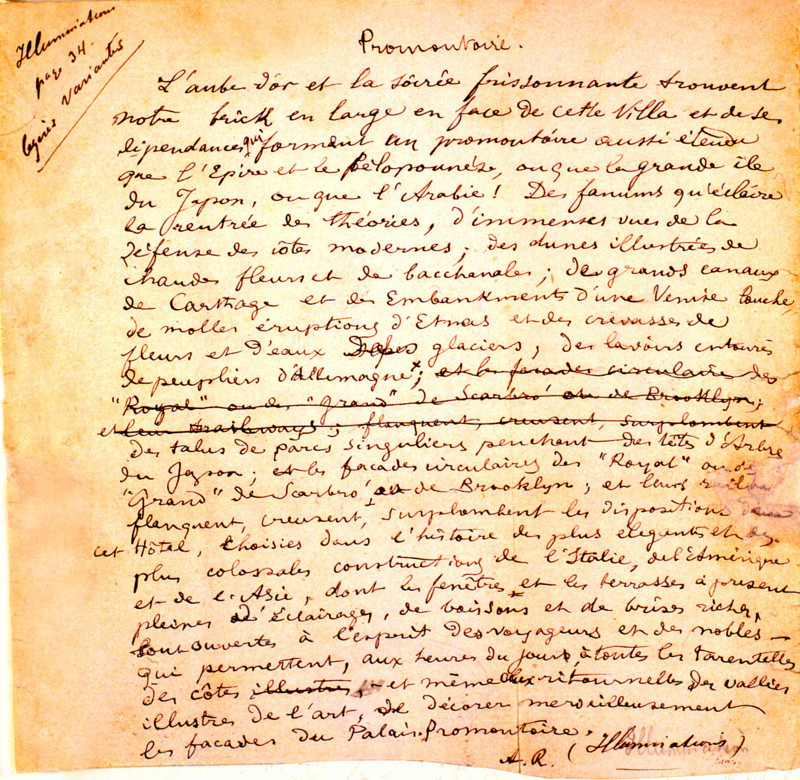 Illuminations
page 34.
légères variantes
Promontoire.
L'aube d'or et la soirée frissonnante trouvent
notre brick en large en face de cette Villa et de ses
dépendances, qui forment un promontoire aussi étendu
que l'Epire et le Péloponnèse, ou que la grande île
du Japon, ou que l'Arabie! Des fanums qu'éclaire
la rentrée des théories, d'immenses vues de la
défense des côtes modernes; des dunes illustrées de
chaudes fleurs et de bacchanales; de grands canaux
de Carthage et des Embankments d'une Venise louche,
de molles éruptions d'Etnas et des crevasses de
fleurs et d'eaux des glaciers, des lavoirs entourés
de peupliers d'Allemagne; et les façades circulaires des
"Royal" ou des "Grand" de Scarbro' ou de Brooklyn;
et leurs railways; flanquent, creusent, surplombent
des talus de parcs singuliers penchant des têtes d'Arbre
du Japon; et les façades circulaires des "Royal" ou de
"Grand" de Scarbro' ou de Brooklyn; et leurs
flanquent, creusent, surplombent les dispositions dans
cet Hôtel, choisies dans l'histoire des plus élégants et des
plus colossales constructions de l'Italie, de l'Amérique
et de l'Asie, dont les fenêtres et les terrasses à présent
pleines d'éclairages, de boissons et de brises riches,
sont ouvertes à l'esprit des voyageurs et des nobles –
qui permettent, aux heures du jour, à toutes les tarentelles
des côtes illustres, – et même aux ritournelles des vallées
illustres de l'art, de décorer merveilleusement
les façades du Palais. Promontoire.
A. R. (Illuminations)